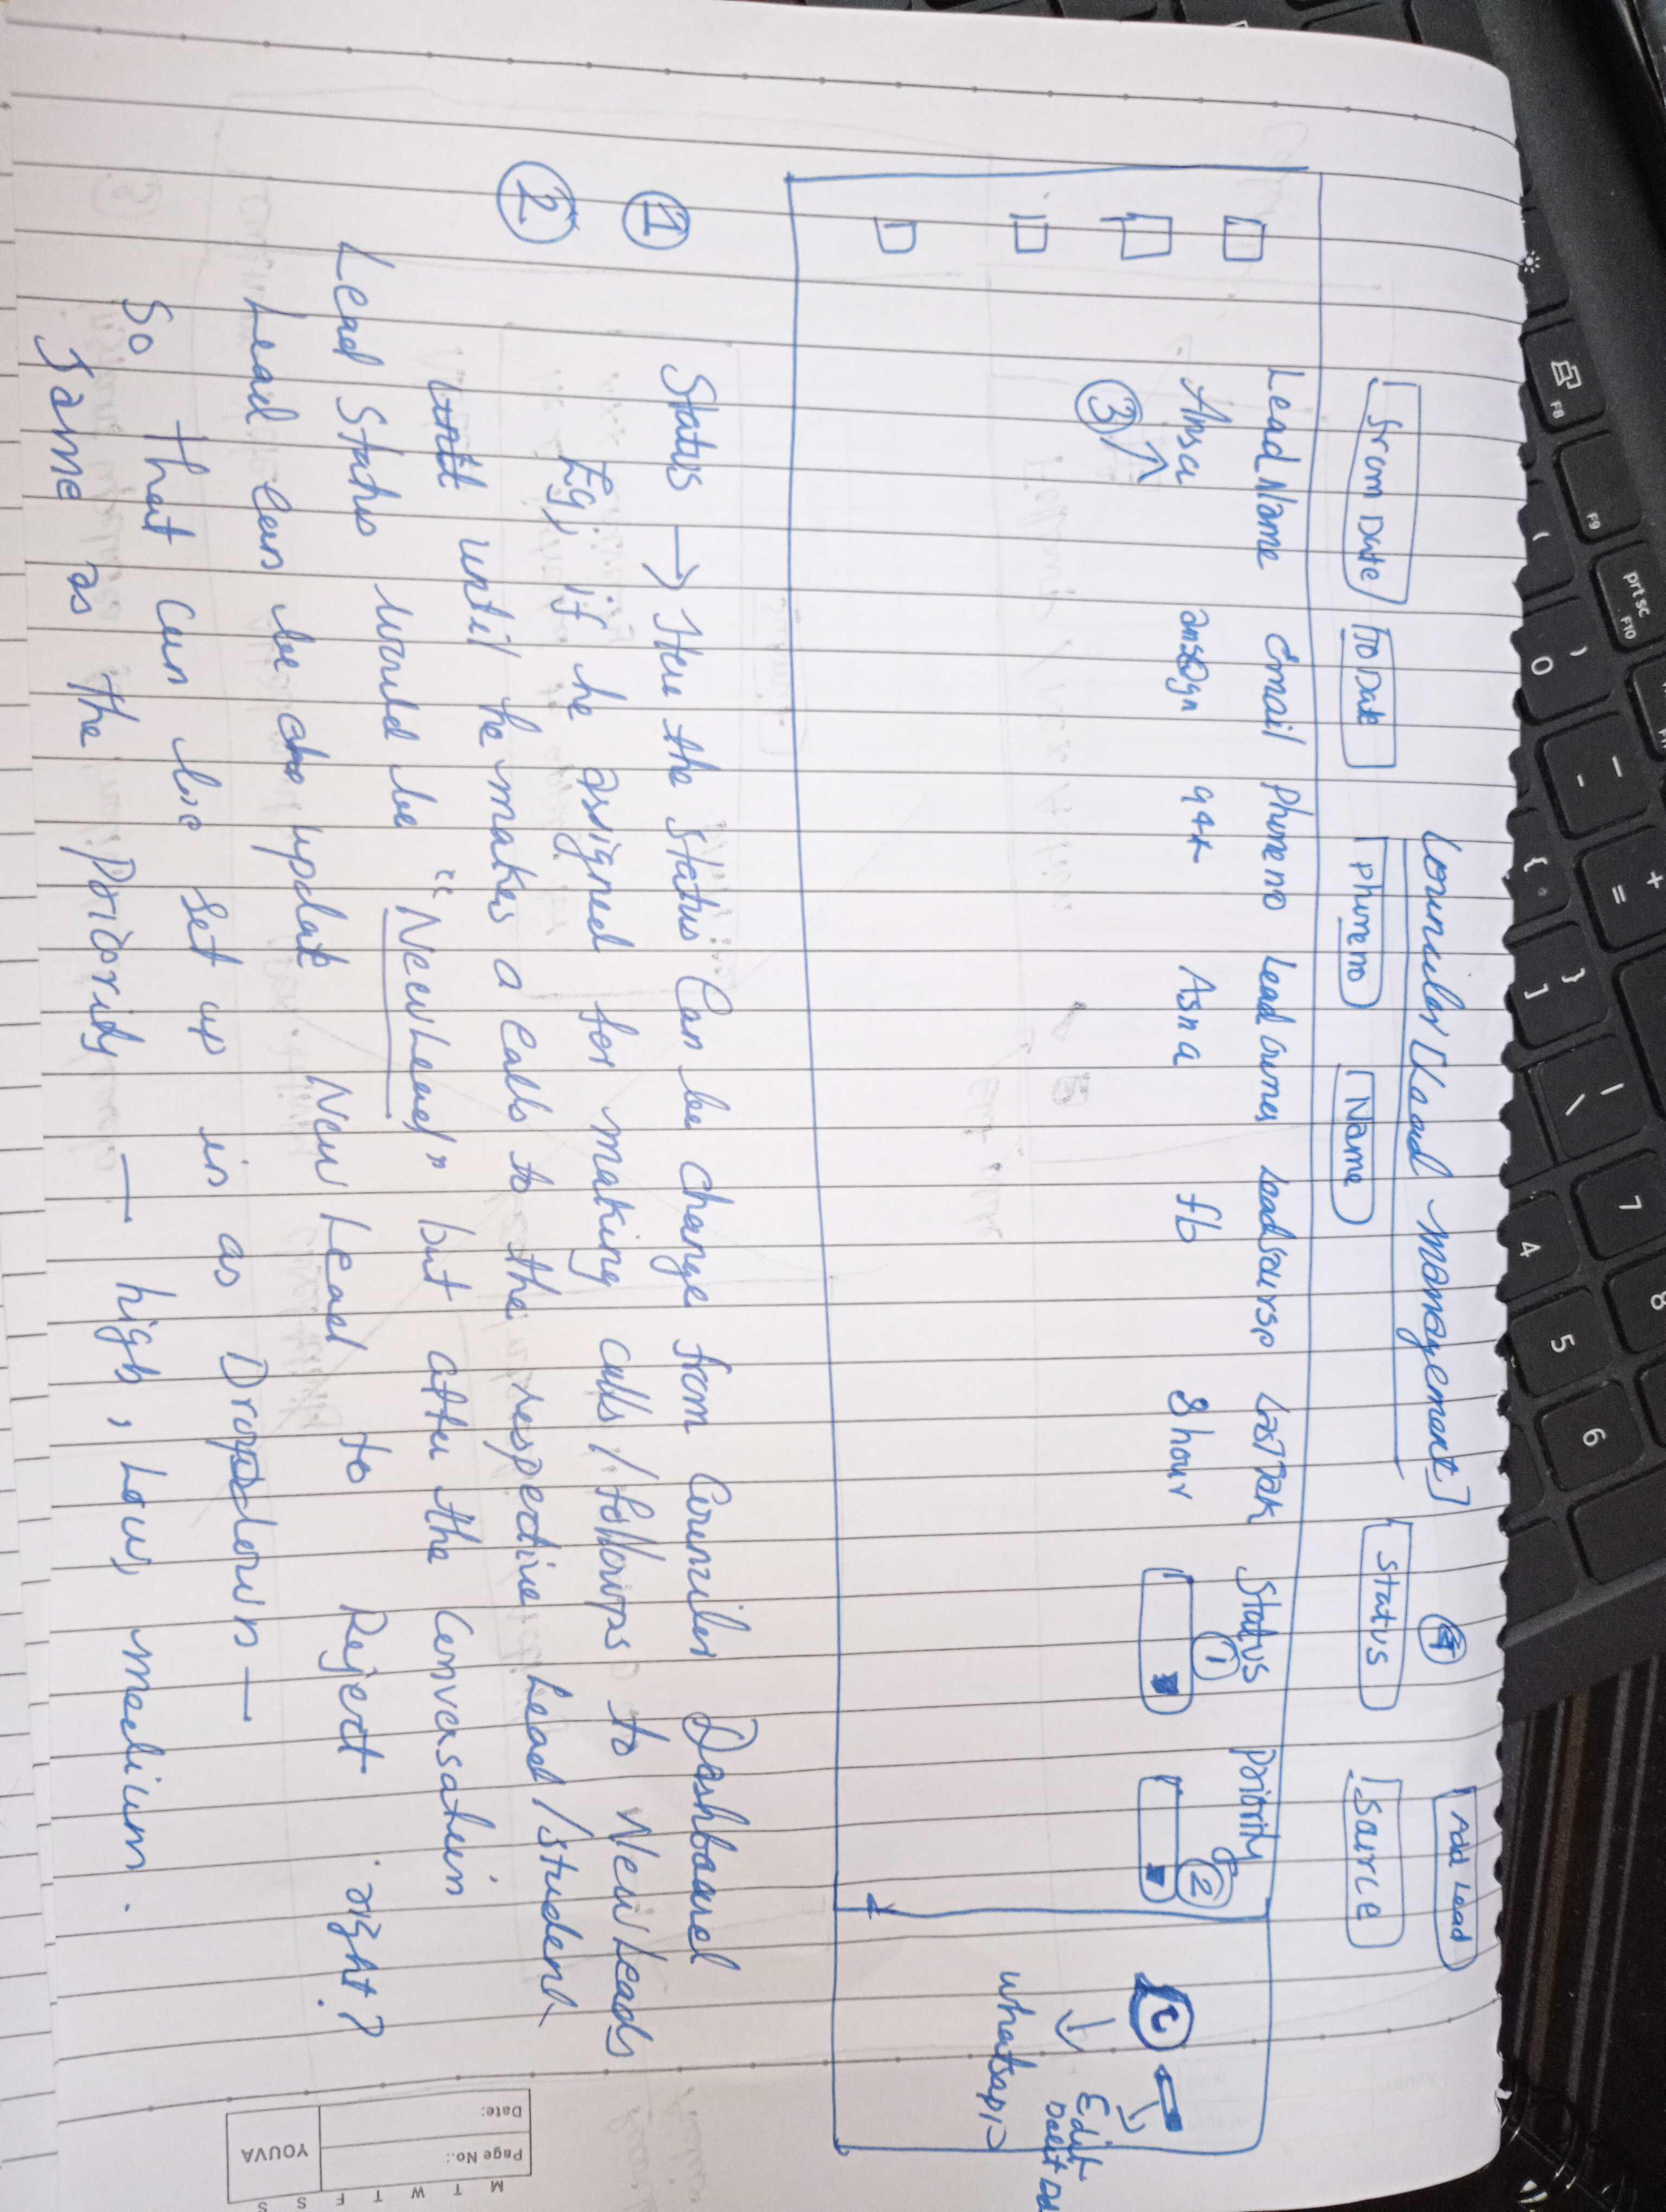 Counciler [Lead management]
④ Add Lead
From Date To Date Phone no Name Status Source
Lead Name Email Phone no Lead owner Leadsourse Last Task Status Poiority
Ansu ans@gn 94+ Asna fb 8 hour ① ②
③
Edit
whatsapp
① Status → Here the status Can be change from Counciler Dashboard
② Eg, if he assigned for making calls / followps to New Leads
until he makes a calls to the respective Lead / student
Lead Status would be "New Lead" but after the Convasation
Lead Can be update New Lead to Reject right?
So that can be set up in as Dropdown —
Same as the Poiority — high, Low, medium.
Date:
Page No.:
YOUVA
M T W T F S S
F8
F9
prt sc
F10
)
0
_
-
+
=
{
[
}
]
|
\
7
8
4
5
6